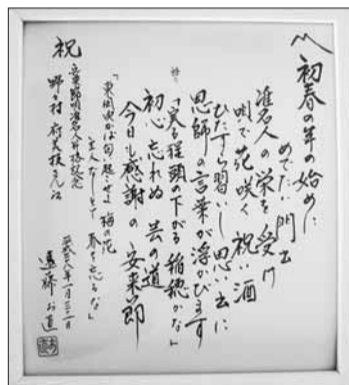 〽初春の年の始めに
めでたい門出
准名人の栄を受け
唄で花咲く祝い酒
ひたすら習いし思い出に
恩師の言葉が浮かびます
「実る程頭の下がる稲穂かな」
初心忘れぬ芸の道
今日も感謝の安来節
「東風吹かば匂い起こせよ梅の花
主人なしとて春を忘るな」
祝
安来節准名人昇格記念
平成二八年一月三一日
遠藤お直